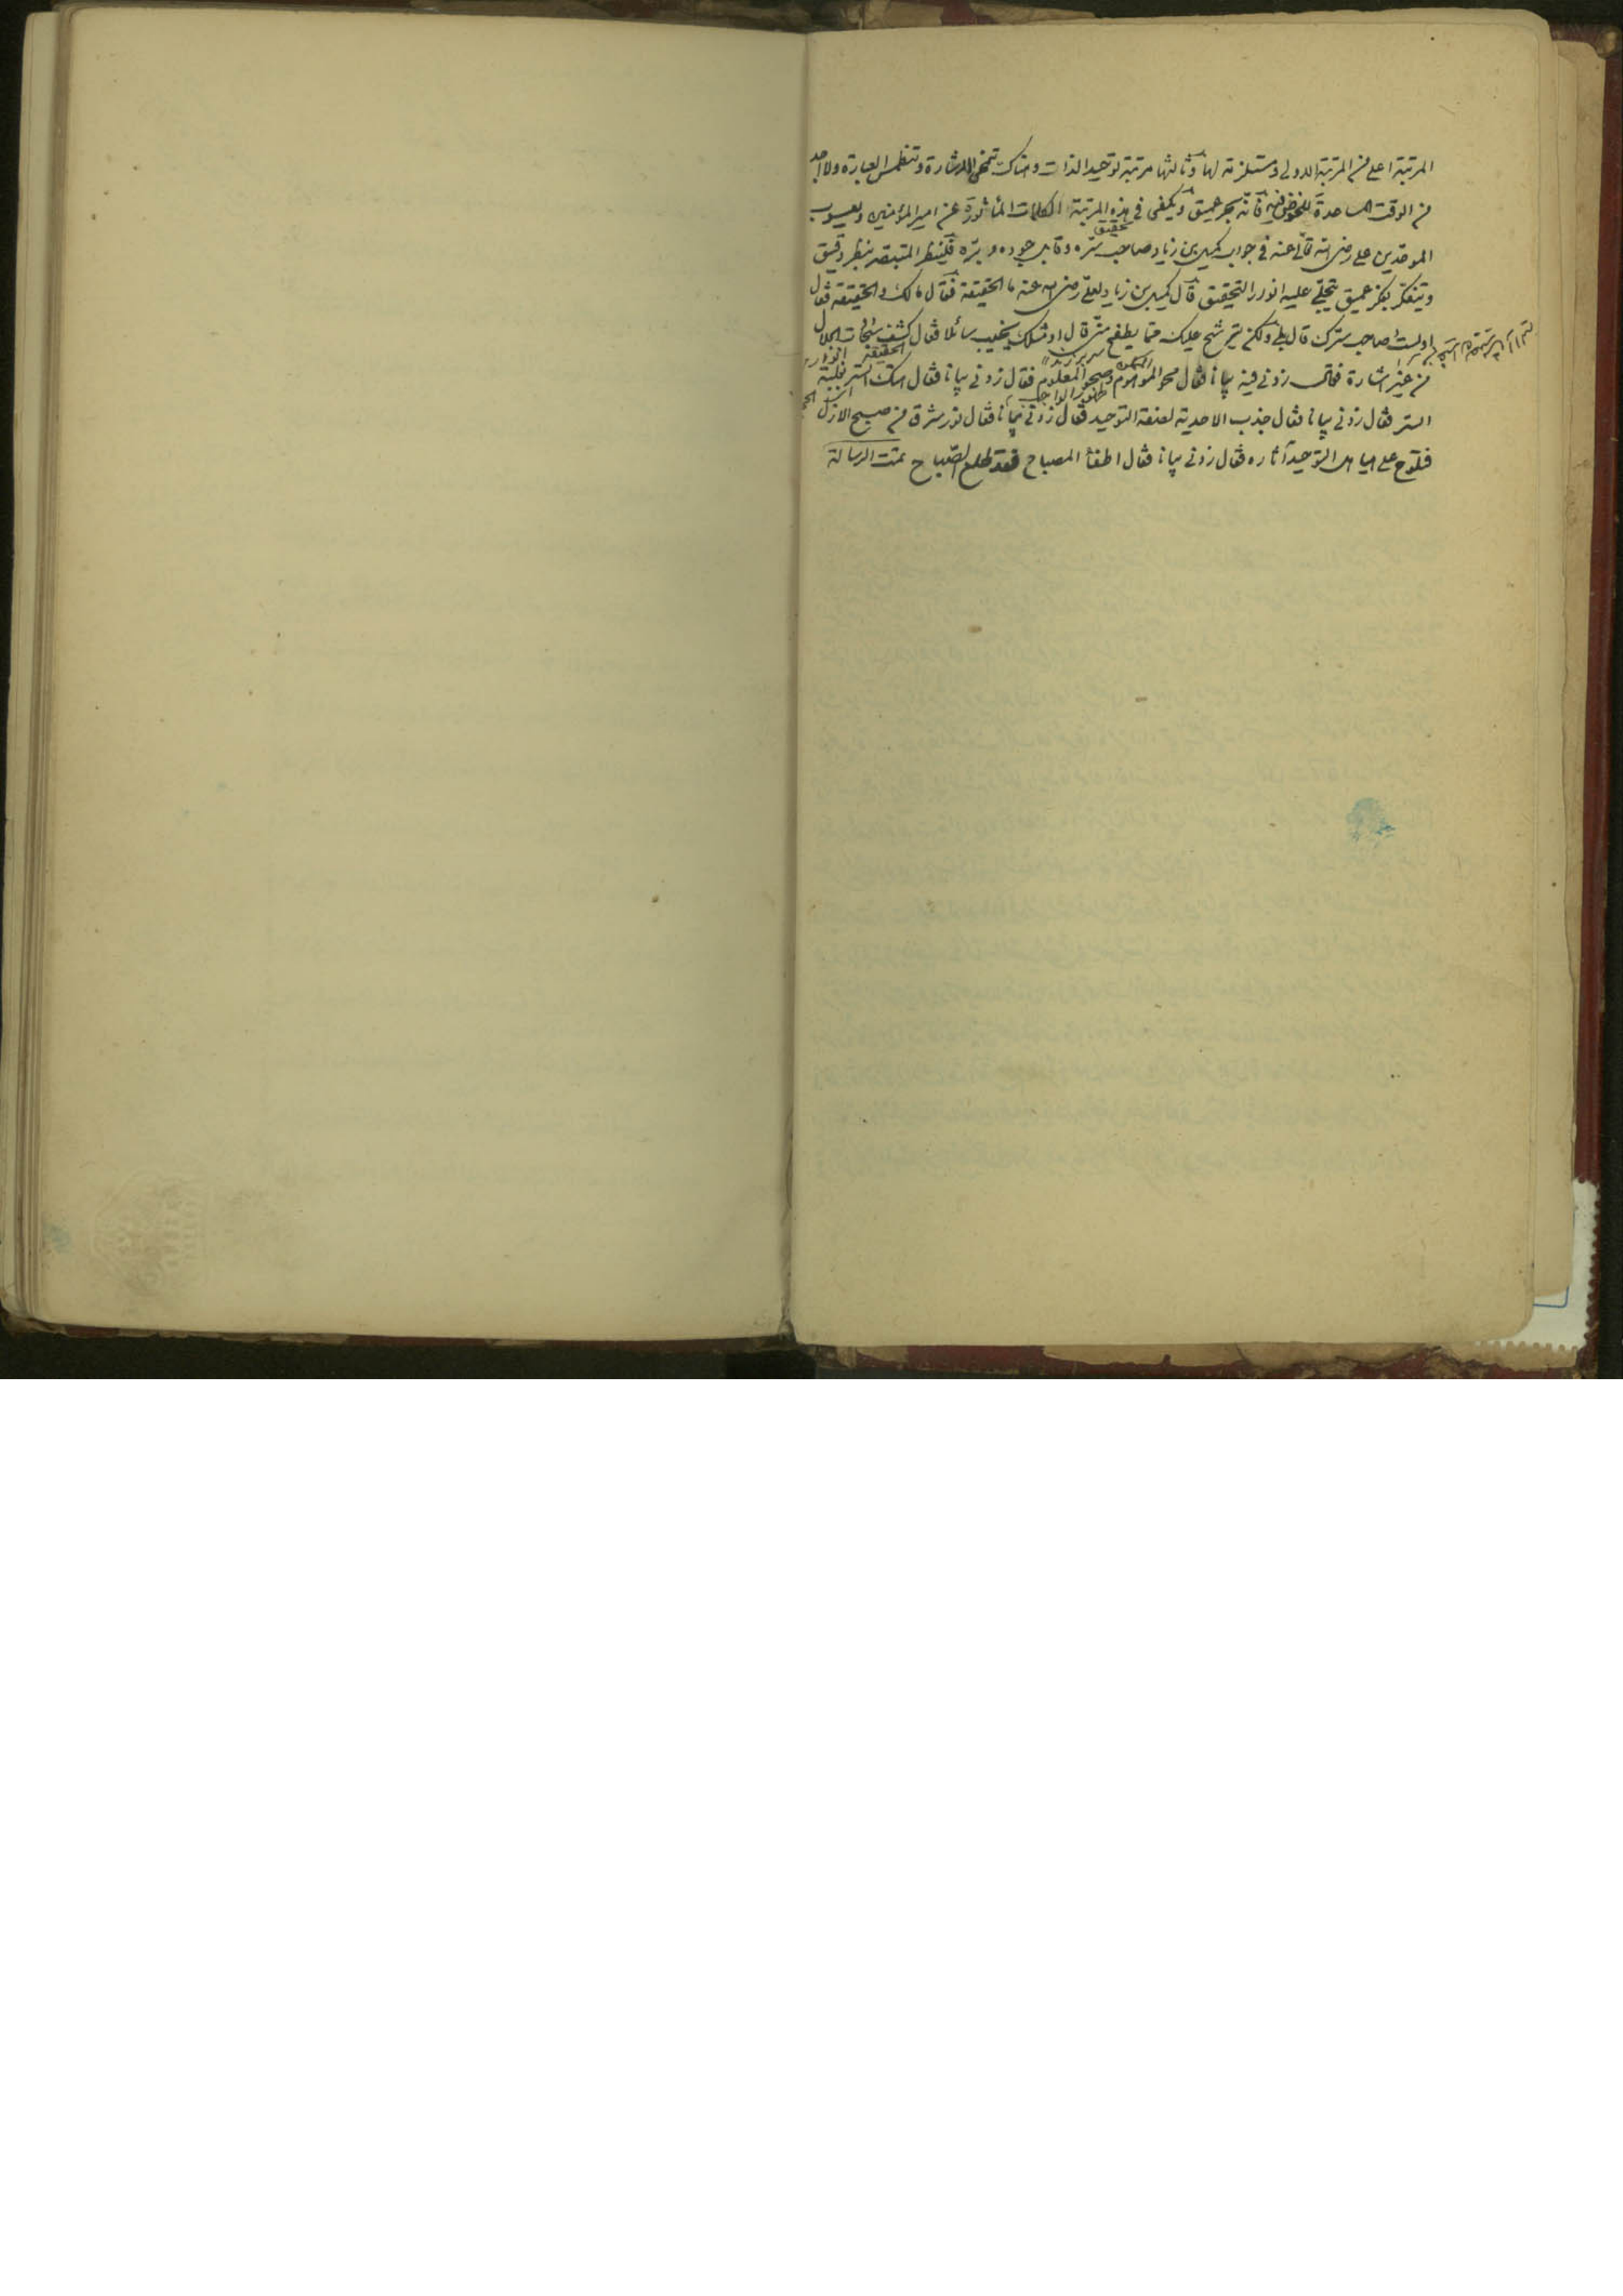 المرتبة اعلى من المرتبة الاولى ومستلزمة لها وثالثها مرتبة توحيد الذات وهناك تنمحى الاشارة وتنطمس العبارة ولا اجد
من الوقت المساعدة للخوض فيه فانه بحر عميق ويكفى فى هذه المرتبة الكلمات المأثورة عن امير المؤمنين ويعسوب
الموحدين على رضى الله تعالى عنه فى جواب كميل بن زياد صاحب سره وقابل جوده وبره فلينظر المتبصر بنظر دقيق
وتيفكر بفكر عميق يتجلى عليه انوار التحقيق قال كميل بن زياد لعلى رضى الله عنه ما الحقيقة فقال ما لك والحقيقة فقال
اولست صاحب سرك قال بلى ولكن يترشح عليك مما يطفح منى قال او مثلك يخيب سائلا فقال كشف سبحات الجلال
من غير اشارة فقال زدنى فيه بيانا فقال محو الموهوم وصحو المعلوم فقال زدنى بيانا فقال هتك الستر لغلبة
السر فقال زدنى بيانا فقال جذب الاحدية لصفة التوحيد فقال زدنى بيانا فقال نور يشرق من صبح الازل
فيلوح على هياكل التوحيد آثاره فقال زدنى بيانا فقال اطفأ المصباح فقد طلع الصباح تمت الرسالة